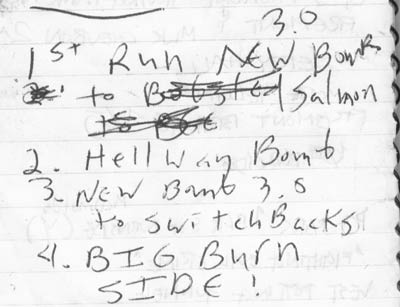 3.0
1st Run NEW Bomb
to Salmon
2. Hellway Bomb
3. NEW Bomb 3.0
to switchBacks
4. BIG Burn
SIDE!